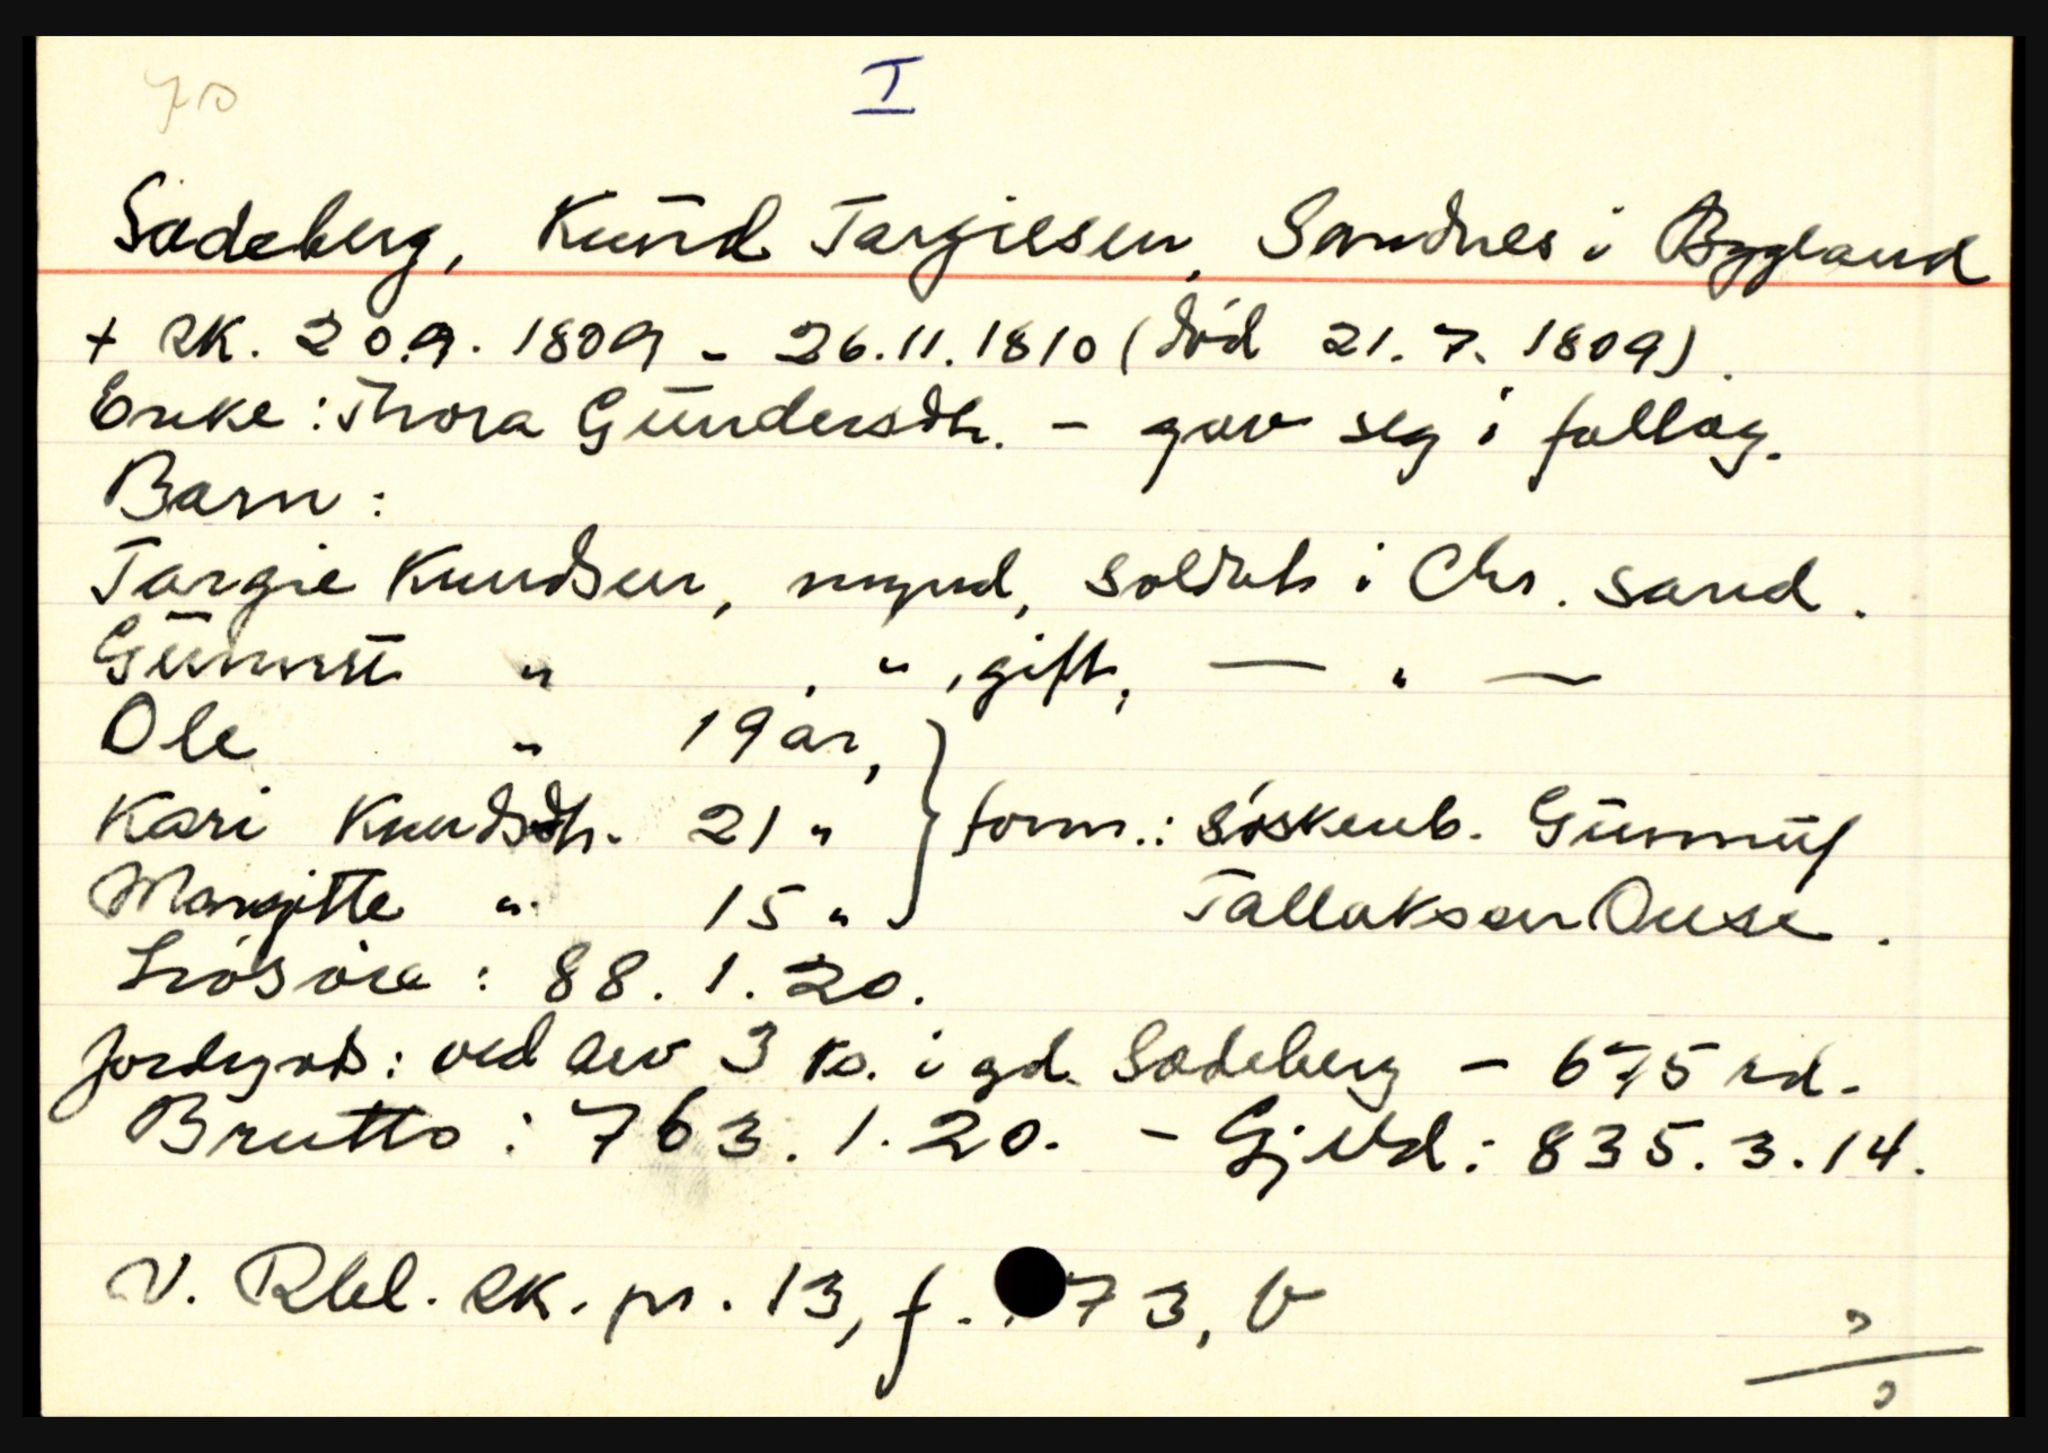 70
I
Sadeberg, Knud Targiesen, Sandnes i Bygland
+ RK. 20.9. 1809 - 26.11.1810 (död 21. 7. 1809).
Enke: Thora Gundersdtr. - gav seg i fallag.
Barn:
Targie Knudsen, mynd, soldat i Chr. sand.
" " , gift, — " —
Ole " 19 år,
Kari Knudsdtr. 21 "
form.: söskenb. Gunnuf
Margitte " 15 "
Tallaksen Ouse.
Lösöre: 88. 1. 20.
Jordgods: ved arv 3 ks. i gd. Sadeberg - 675 rd.
Brutto: 763. 1. 20. - Gjeld: 835. 3. 14.
V. Rbl. RK. pr. 13, f. 73, b